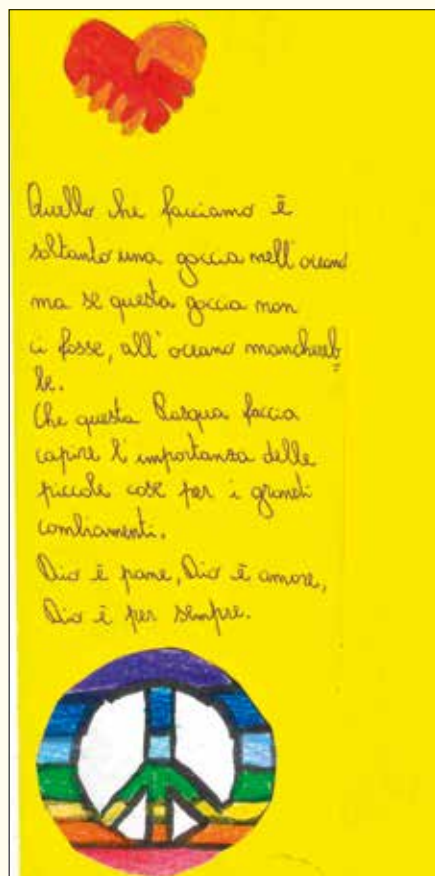 Quello che facciamo è
soltanto una goccia nell'oceano
ma se questa goccia non
ci fosse, all'oceano manchereb
be.
Che questa Pasqua faccia
capire l'importanza delle
piccole cose per i grandi
cambiamenti.
Dio è pane, Dio è amore,
Dio è per sempre.